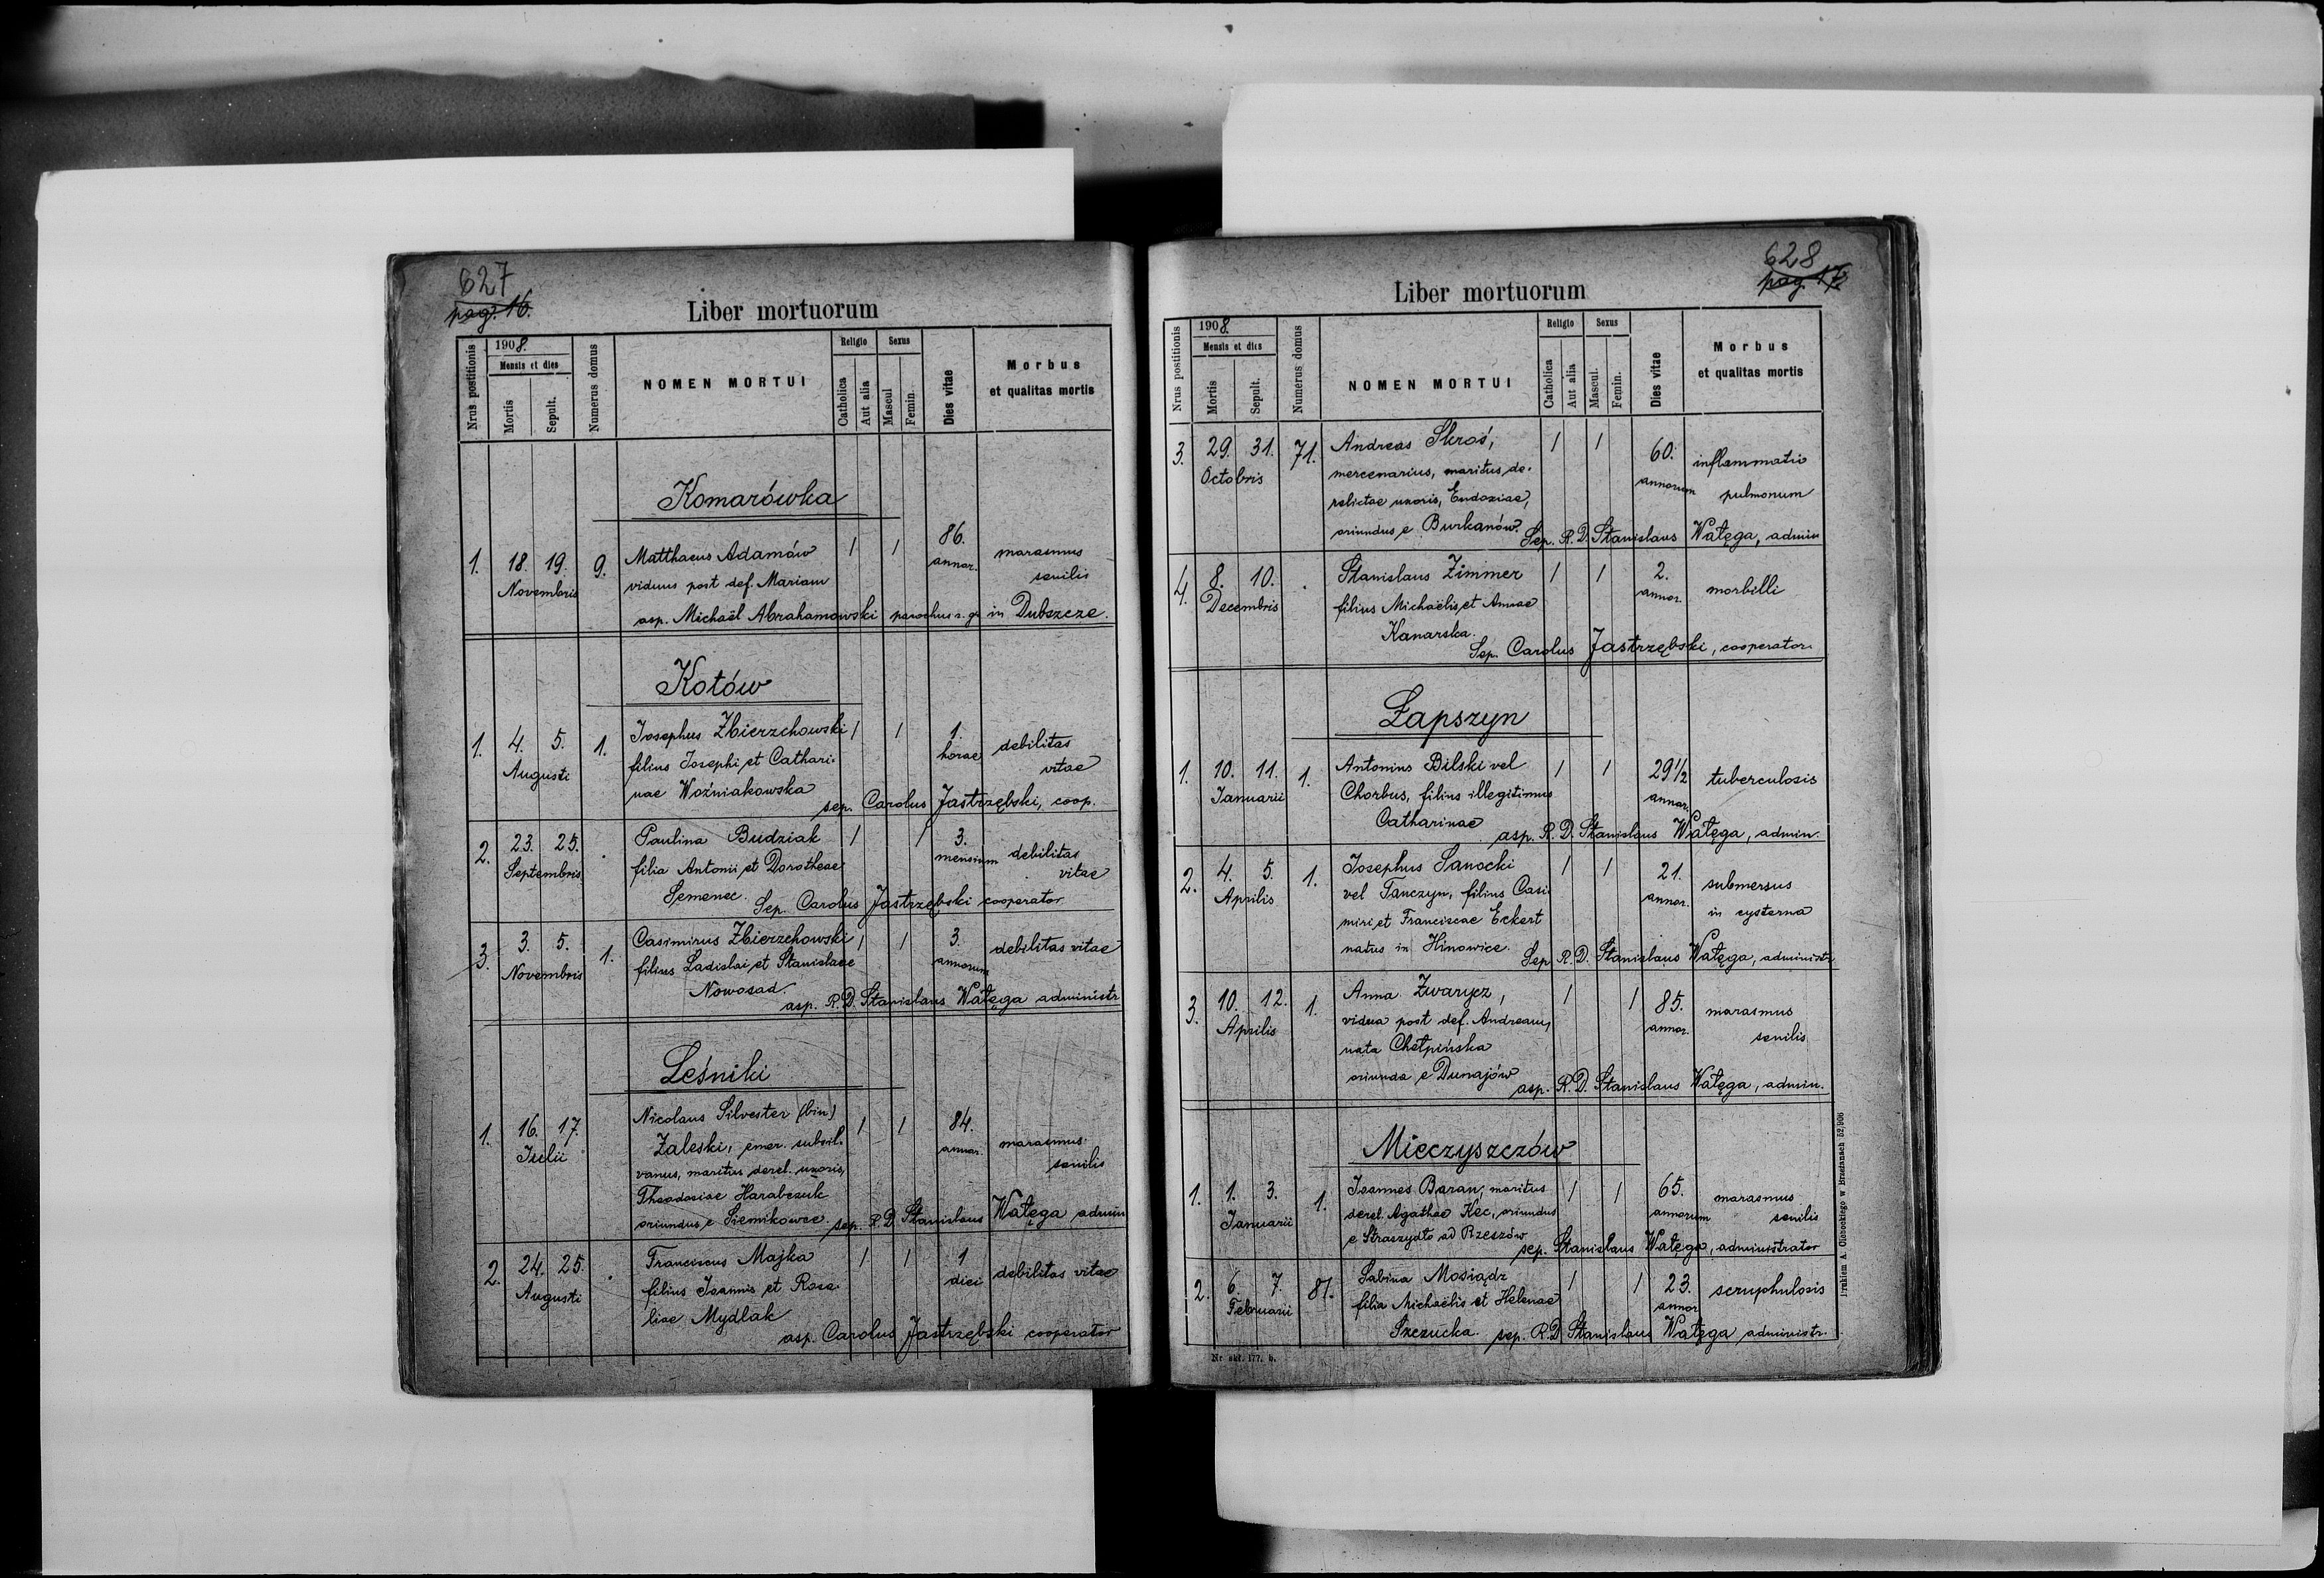 627
pag. 16.
Liber mortuorum
Nrus postitionis
1908.
Mensis et dies
Mortis
Sepult.
Numerus domus
NOMEN MORTUI
Religio
Catholica
Aut alia
Sexus
Mascul
Femin.
Dies vitae
Morbus
et qualitas mortis
Komarówka
1. 18. 19. Novembris 9. Matthaeus Adamów / / 86. annor. marasmus senilis
viduus post def. Mariam
asp. Michaël Abrahamowski parochus r. gr. in Dubszcze.
Kotów
1. 4. 5. Augusti 1. Josephus Zbierzchowski / / 1. horae debilitas vitae
filius Josephi et Cathari-
nae Woźniakowska
sep. Carolus Jastrzębski, coop.
2. 23. 25. Septembris . Paulina Budziak / / 3. mensium debilitas vitae
filia Antonii et Dorotheae
Semenec. Sep. Carolus Jastrzębski cooperator
3. 3. 5. Novembris 1. Casimirus Zbierzchowski / / 3. annorum debilitas vitae
filius Ladislai et Stanislaae
Nowosad.
asp. R. D. Stanislaus Wałęga administr
Leśniki
1. 16. 17. Julii . Nicolaus Silvester (bin) / / 84. annor. marasmus senilis
Zaleski, emer. subsil-
vanus, maritus derel. uxoris,
Theodosiae Harabczuk
oriundus e Siemikowce. sep. R. D. Stanislaus Wałęga admin
2. 24. 25. Augusti . Franciscus Majka / / 1 diei debilitas vitae
filius Joannis et Rosa-
liae Mydlak
asp. Carolus Jastrzębski cooperator
628
pag. 17
Liber mortuorum
Nrus postitionis
1908.
Mensis et dies
Mortis
Sepult.
Numerus domus
NOMEN MORTUI
Religio
Catholica
Aut alia
Sexus
Mascul.
Femin.
Dies vitae
Morbus
et qualitas mortis
3. 29. 31. Octobris 71. Andreas Skroś, / / 60. annorum inflammatio pulmonum
mercenarius, maritus de-
relictae uxoris, Eudoxiae,
oriundus e Burkanów. Sep. R. D. Stanislaus Wałęga, admin
4. 8. 10. Decembris . Stanislaus Zimmer / / 2. annor. morbilli
filius Michaëlis et Annae
Kanarska.
Sep. Carolus Jastrzębski, cooperator.
Łapszyn
1. 10. 11. Januarii 1. Antonius Bilski vel / / 29 1/2 annor. tuberculosis
Chorbus, filius illegitimus
Catharinae
asp. R. D. Stanislaus Wałęga, admin.
2. 4. 5. Aprilis 1. Josephus Sanocki / / 21. annor. submersus in cysterna
vel Tanczyn, filius Casi-
miri et Franciscae Eckert
natus in Hinowice. Sep R. D. Stanislaus Wałęga, administr
3. 10. 12. Aprilis 1. Anna Zwarycz, / / 85. annor. marasmus senilis
vidua post def. Andream,
nata Chełpińska
oriunda e Dunajów
asp. R. D. Stanislaus Wałęga, admin.
Mieczyszczów
1. 1. 3. Januarii 1. Joannes Baran, maritus / / 65. annorum marasmus senilis
derel. Agathae Kec, oriundus
e Straszydło ad Rzeszów
sep. Stanislaus Wałęga, administrator
2. 6. 7. Februarii 81. Sabina Mosiądz / / 23. annor scruphulosis
filia Michaëlis et Helenae
Szczucka. sep. R. D Stanislaus Wałęga administr.
Nr skł. 177. b.
Drukiem A. Cichockiego w Brzeżanach 52,906